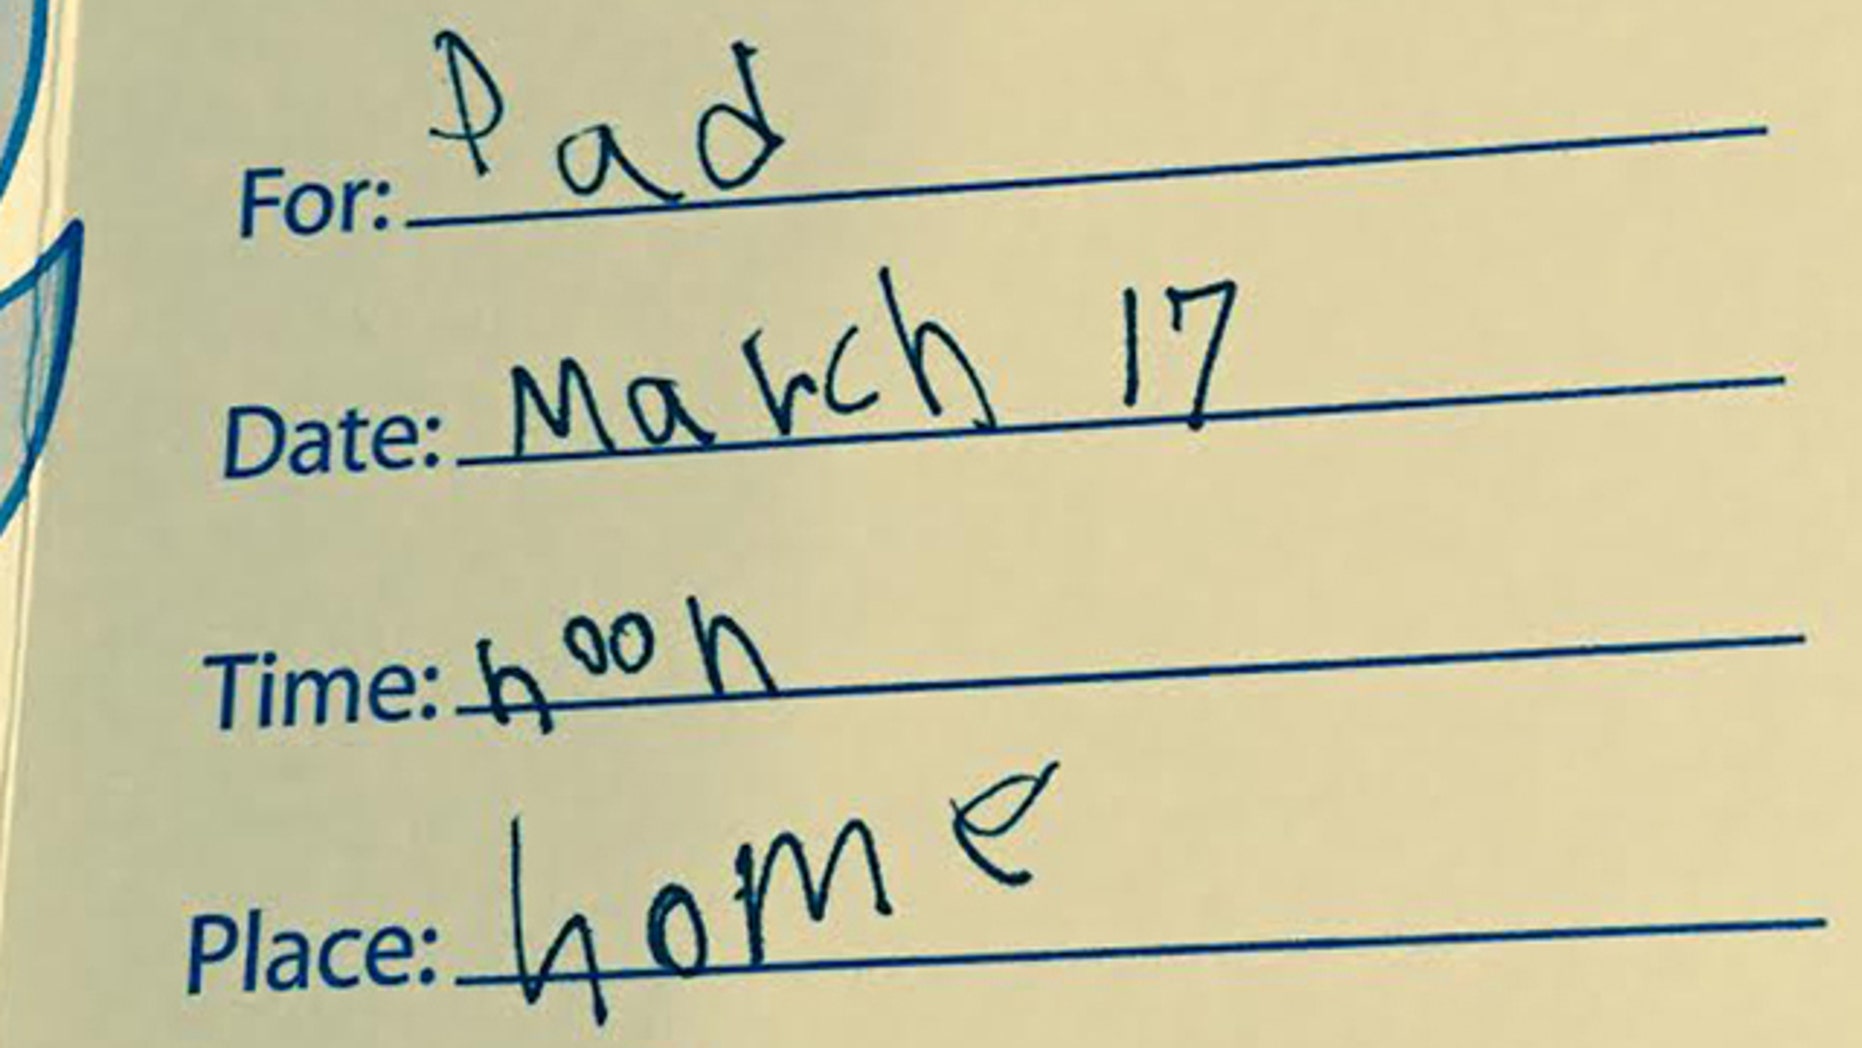 For: Dad
Date: March 17
Time: noon
Place: home